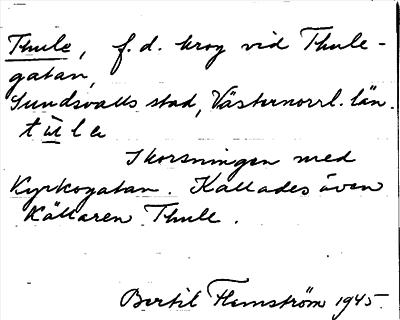 Thule, f.d. krog vid Thule-
gatan,
Sundsvalls stad, Västernorrl. län.
tu̲le
I korsningen med
Kyrkogatan. Kallades även
Källaren Thule.
Bertil Flemström 1945.